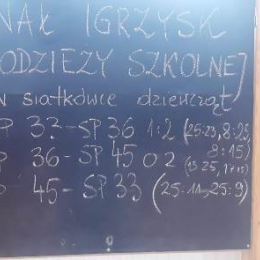 NAŁ IGRZYSK
ODZIEŻY SZKOLNEJ
W siatkówce dziewcząt
P 33 - SP 36 1:2 (25:23, 8:25, 8:15)
P 36 - SP 45 0 2 (13 25, 17:25)
P 45 - SP 33 (25:11, 25:9)